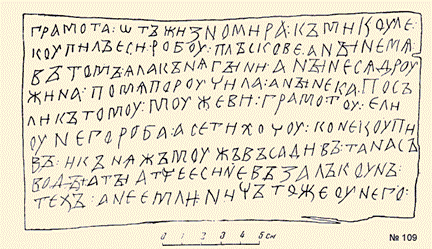 ГРАМОТА : ѠТЪЖИЗНОМИРА : КЪМИКОУЛЕ :
КОУПИЛЪЕСИ : РОБОУ : ПЛЪСКОВЕ : АНЪІНЕМѦ :
ВЪТОМЪ : ѦЛАКЪНѦГЪІНИ : АНЪІНЕСѦДРОУ
ЖИНА : ПОМѦПОРОУЧИЛА : АНЪІНЕКА : ПОСЪ
ЛИКЪТОМОУ : МОУЖЕВИ : ГРАМОТОУ : ЕЛИ
ОУНЕГОРОБА : АСЕТИХОЧОУ : КОНЕКОУПИ
ВЪ : ИКЪНѦЖЪМОУЖЪВЪСАДИВЪ : ТАНАСЪ
ВОДЪІ : АТЪІАТЧЕЕСИНЕВЪЗАЛЪКОУНЪ :
ТЕХЪ : АНЕЕМЛИ : НИЧЪТОЖЕОУНЕГО :
0 1 2 3 4 5 см
№ 109